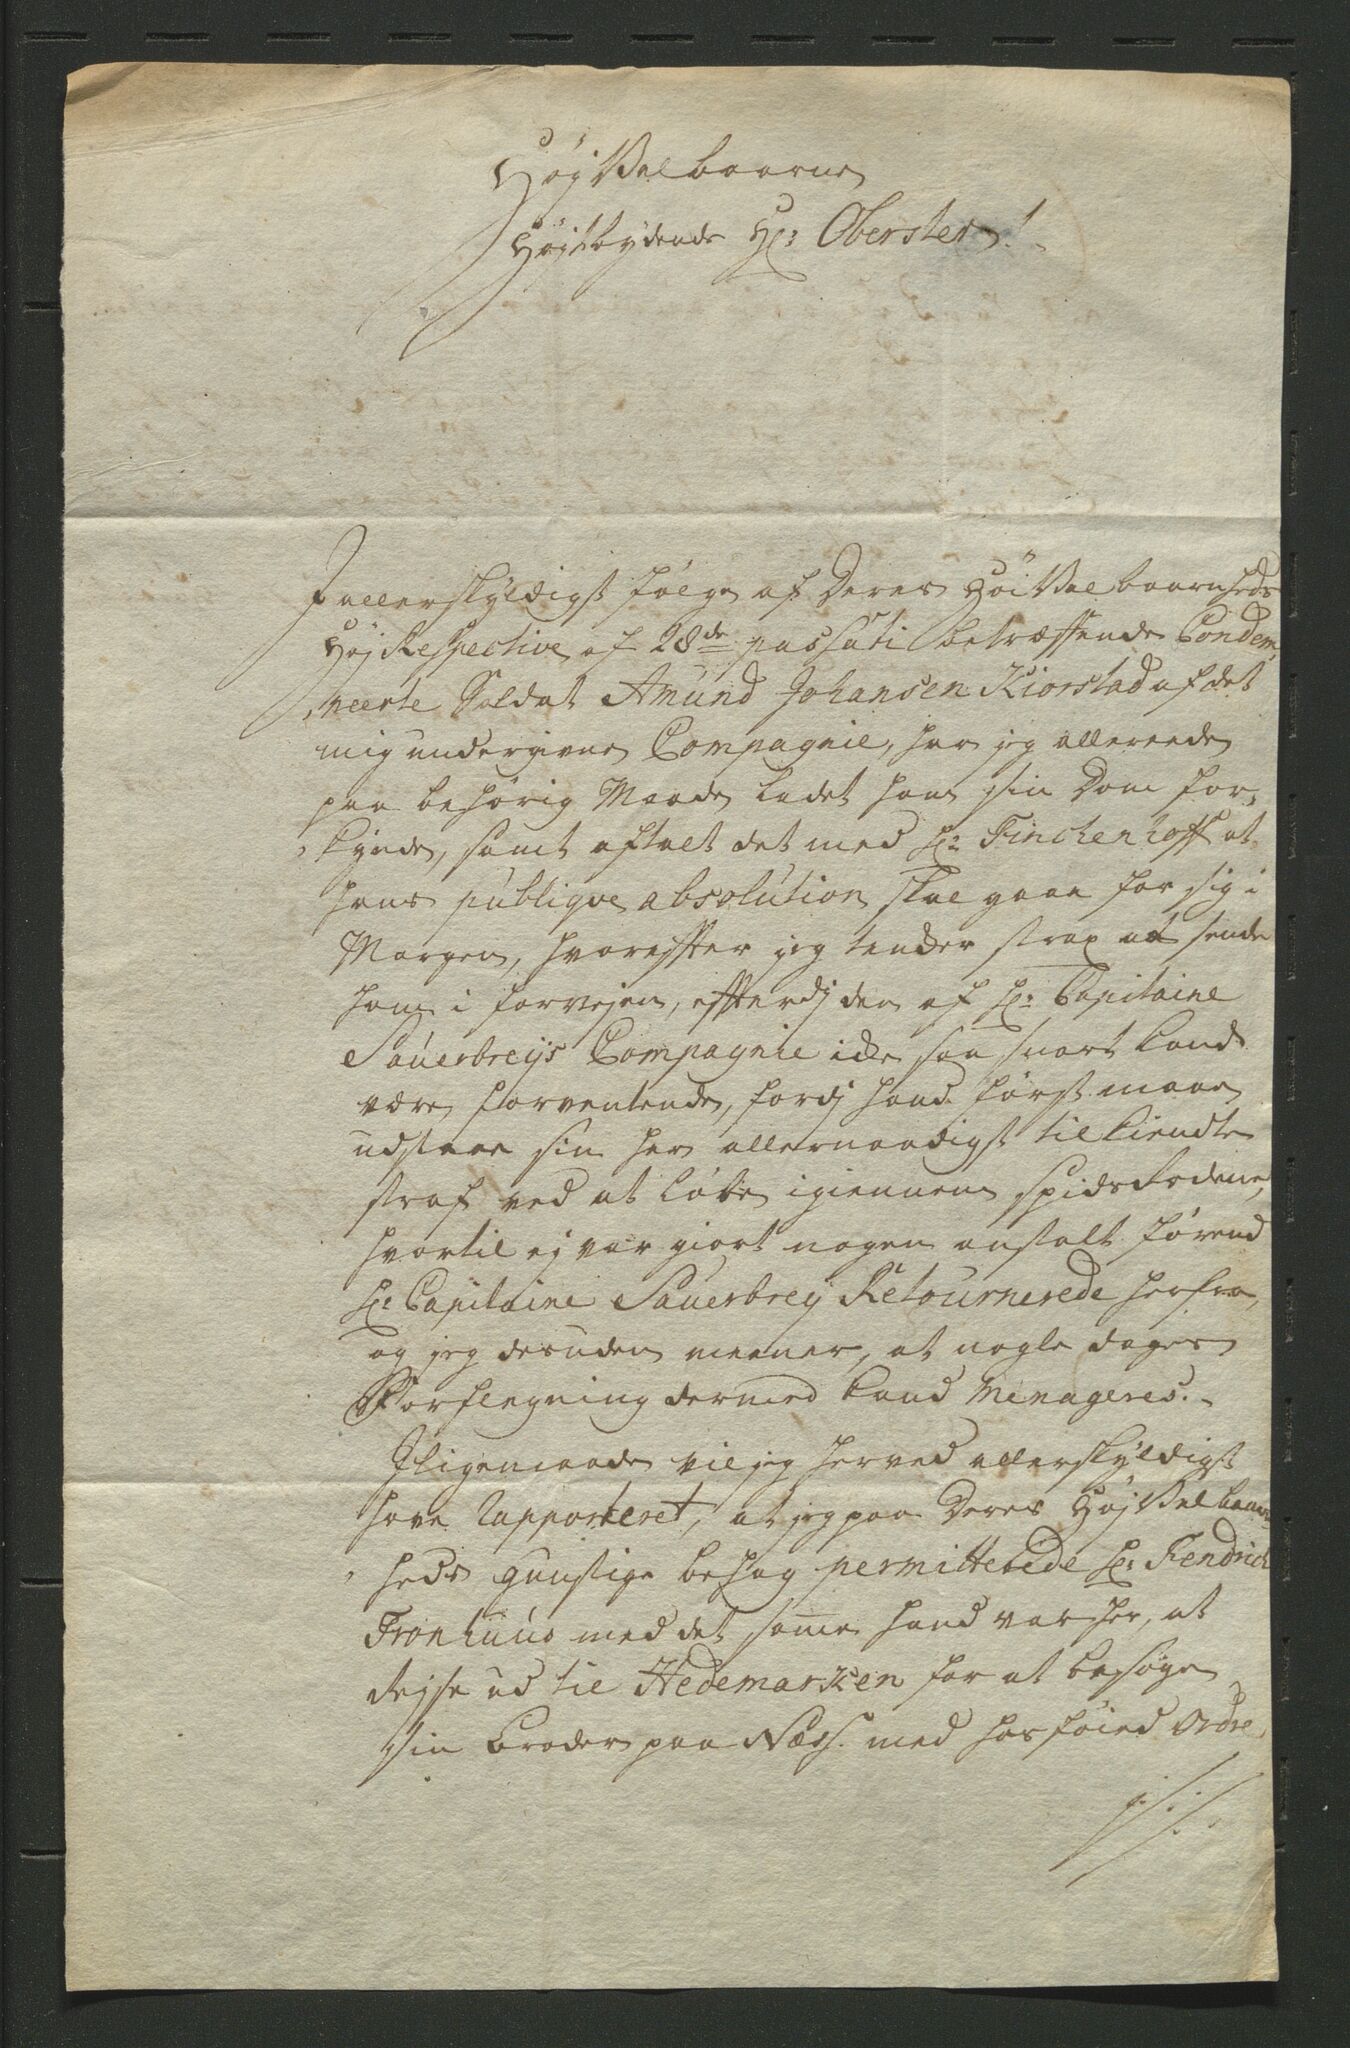 Høj Velbaarne
Højstbydende Hr: Oberster!
I allerskyldigst følge af Deres Høi Velbaarenheds
Høj Respective af 28de passati betræffende Condem,
neerte Soldat Amund Johansen Kiorstad af det
mig undergivne Compagnie, har jeg allereede
paa behørig Maade ladet ham sin Dom for,
kynde, samt aftalt det med Hr: Finchenhoff at
hans publique absolution skal gaae for sig i
Morgen, hvorefter jeg tencker strax at sende
ham i forvejen, efterdj den af Hr: Capitaine
Sauerbreijs Compagnie icke saa snart kand
være forventende, fordj hand først maae
udstaae sin her allernaadigst tilkiendte
straf ved at løbe igiennem spidsrodene,
hvortil ej var giort nogen anstalt førend
Hr: Capitaine Sauerbreij Retournerede herfra,
og jeg desuden meener, at nogle dages
Forflegning dermed kand Menageres.
Iligemaade vil jeg herved allerskyldigst
have Rapporteret, at jeg paa Deres Høj Velbaaren
heds gunstige behag permitterede Hr: Fendrich
Fronhuus med det samme hand var her, at
rejse ud til Hedemarken for at besøge
sin broder paa Næss. med hosføied Ordre